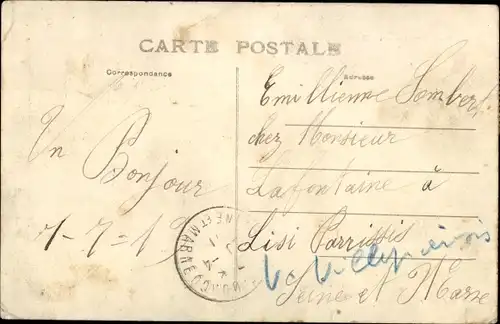 CARTE POSTALE
Correspondance
Adresse
Un Bonjour
Emillienne Lambert
chez Monsieur
Lafontaine à
Lisi Parrissis
V. Villeparisis
Seine et Marne
SEINE ET MARNE